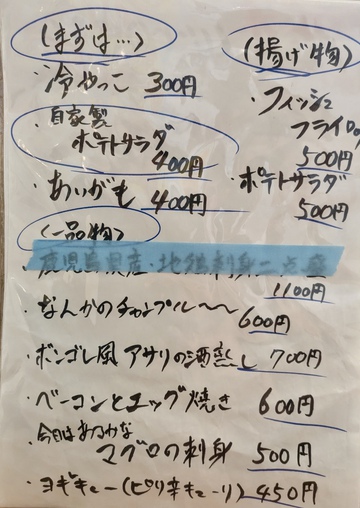 (まずは…)
・冷やっこ 300円
・自家製
ポテトサラダ
400円
・あいがも 400円
(揚げ物)
・フィッシュ
フライ
500円
ポテトサラダ
500円
(一品物)
・鹿児島県産・地鶏刺身二点盛
1100円
・なんかのチャンプル〜〜
600円
・ボンゴレ風 アサリの酒蒸し 700円
・ベーコンとエッグ焼き 600円
・今日は
マグロの刺身 500円
・ヨギキュー(ピリ辛キューリ) 450円